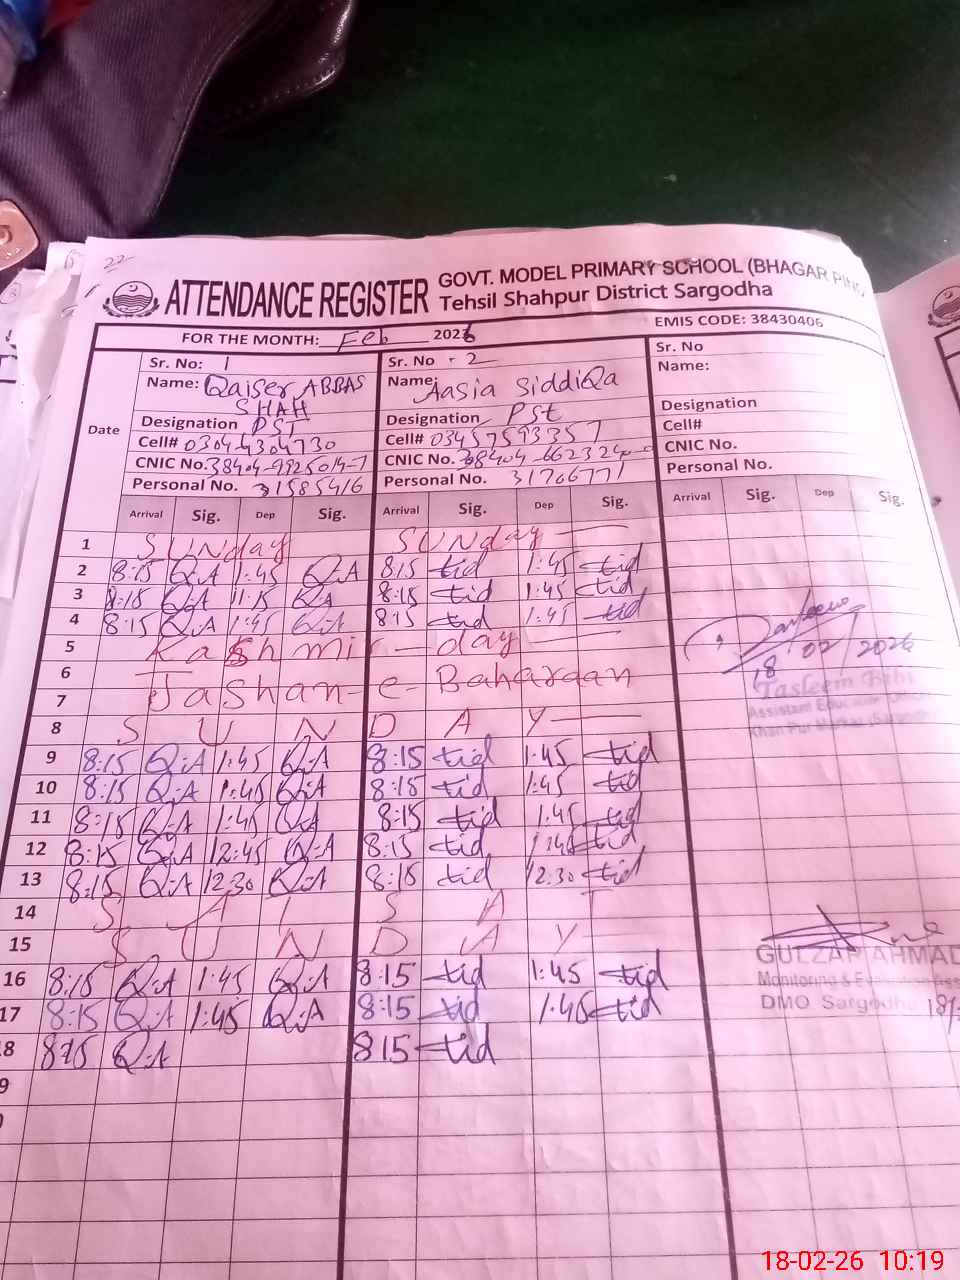 22
ATTENDANCE REGISTER
GOVT. MODEL PRIMARY SCHOOL (BHAGAR
Tehsil Shahpur District Sargodha
FOR THE MONTH: Feb 2026
EMIS CODE: 38430406
Date
Sr. No: 1
Name: Qaiser ABBAS
SHAH
Designation PST
Cell# 03044304730
CNIC No. 38404-9925014-7
Personal No. 31585416
Sr. No - 2
Name: Aasia SiddiQa
Designation Pst
Cell# 03457593357
CNIC No.
Personal No. 31706771
Sr. No
Name:
Designation
Cell#
CNIC No.
Personal No.
Arrival Sig. Dep Sig. Arrival Sig. Dep Sig. Arrival Sig. Dep Sig.
1 SUNday SUNday
2 8:15 Q.A 1:45 Q.A 8:15 tid 1:45 tid
3 8:15 Q.A 1:15 QA 8:15 tid 1:45 tid
4 8:15 Q.A 1:45 Q.A 8:15 tid 1:45 tid
5 Kashmir day
6
7 Jashan-e-Baharaan
8 SUNDAY
9 8:15 Q.A 1:45 Q.A 8:15 tid 1:45 tid
10 8:15 Q.A 1:45 Q.A 8:15 tid 1:45 tid
11 8:15 Q.A 1:45 Q.A 8:15 tid 1:45 tid
12 8:15 Q.A 12:45 Q.A 8:15 tid 1:45 tid
13 8:15 Q.A 12:30 Q.A 8:15 tid 12:30 tid
14 SAT SAT
15 SUNDAY
16 8:15 Q.A 1:45 Q.A 8:15 tid 1:45 tid
17 8:15 Q.A 1:45 Q.A 8:15 tid 1:45 tid
8 8:15 Q.A 8:15 tid
9
18/02/2026
Tasleem Bibi
Assistant
GULZAR AHMAD
Monitoring &
DMO Sargodha
18-02-26 10:19